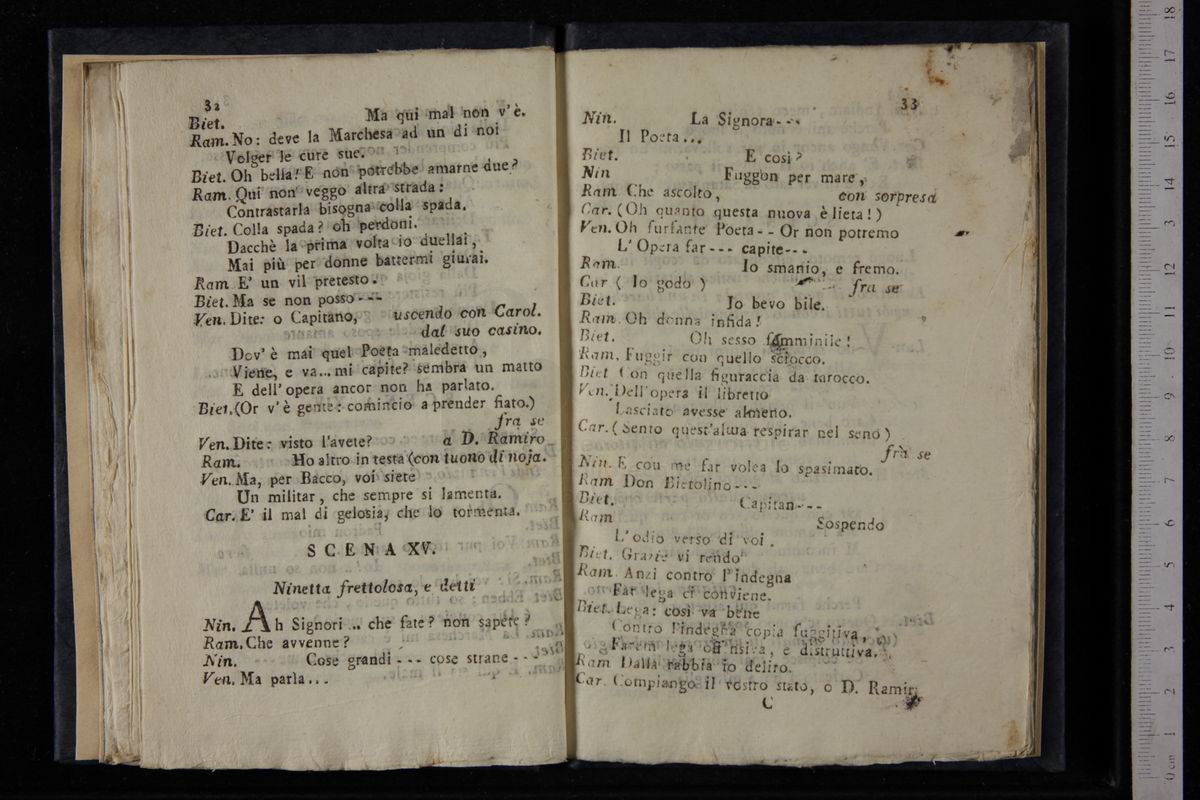 32
Biet. Ma qui mal non v'è.
Ram. No: deve la Marchesa ad un di noi
Volger le cure sue.
Biet. Oh bella! E non potrebbe amarne due?
Ram. Qui non veggo altra strada:
Contrastarla bisogna colla spada.
Biet. Colla spada? oh perdoni.
Dacchè la prima volta io duellai,
Mai più per donne battermi giurai.
Ram E' un vil pretesto.
Biet. Ma se non posso---
Ven. Dite: o Capitano, uscendo con Carol.
dal suo casino.
Dov'è mai quel Poeta maledetto,
Viene, e va... mi capite? sembra un matto
E dell'opera ancor non ha parlato.
Biet. (Or v'è gente: comincio a prender fiato.)
fra se
Ven. Dite: visto l'avete? a D. Ramiro
Ram. Ho altro in testa (con tuono di noja.
Ven. Ma, per Bacco, voi siete
Un militar, che sempre si lamenta.
Car. E' il mal di gelosia, che lo tormenta.
SCENA XV.
Ninetta frettolosa, e detti
Nin. Ah Signori ... che fate? non sapete?
Ram. Che avvenne?
Nin. Cose grandi --- cose strane --
Ven. Ma parla...
33
Nin. La Signora---
Il Poeta...
Biet. E così?
Nin Fuggon per mare,
Ram Che ascolto, con sorpresa
Car. (Oh quanto questa nuova è lieta!)
Ven. Oh furfante Poeta-- Or non potremo
L'Opera far--- capite---
Ram. Io smanio, e fremo.
Car ( Io godo ) fra se
Biet. Io bevo bile.
Ram. Oh donna infida!
Biet. Oh sesso femminile!
Ram. Fuggir con quello sciocco.
Biet Con quella figuraccia da tarocco.
Ven. Dell'opera il libretto
Lasciato avesse almeno.
Car. (Sento quest'alma respirar nel seno)
frà se
Nin. E con me far volea lo spasimato.
Ram Don Bietolino---
Biet. Capitan---
Ram Sospendo
L'odio verso di voi.
Biet. Grazie vi rendo
Ram. Anzi contro l'indegna
Far lega ci conviene.
Biet. Lega: così va bene
Contro l'indegna copia fuggitiva,
Farem lega offensiva, e distruttiva.
Ram Dalla rabbia io deliro.
Car. Compiango il vostro stato, o D. Ramir.
C